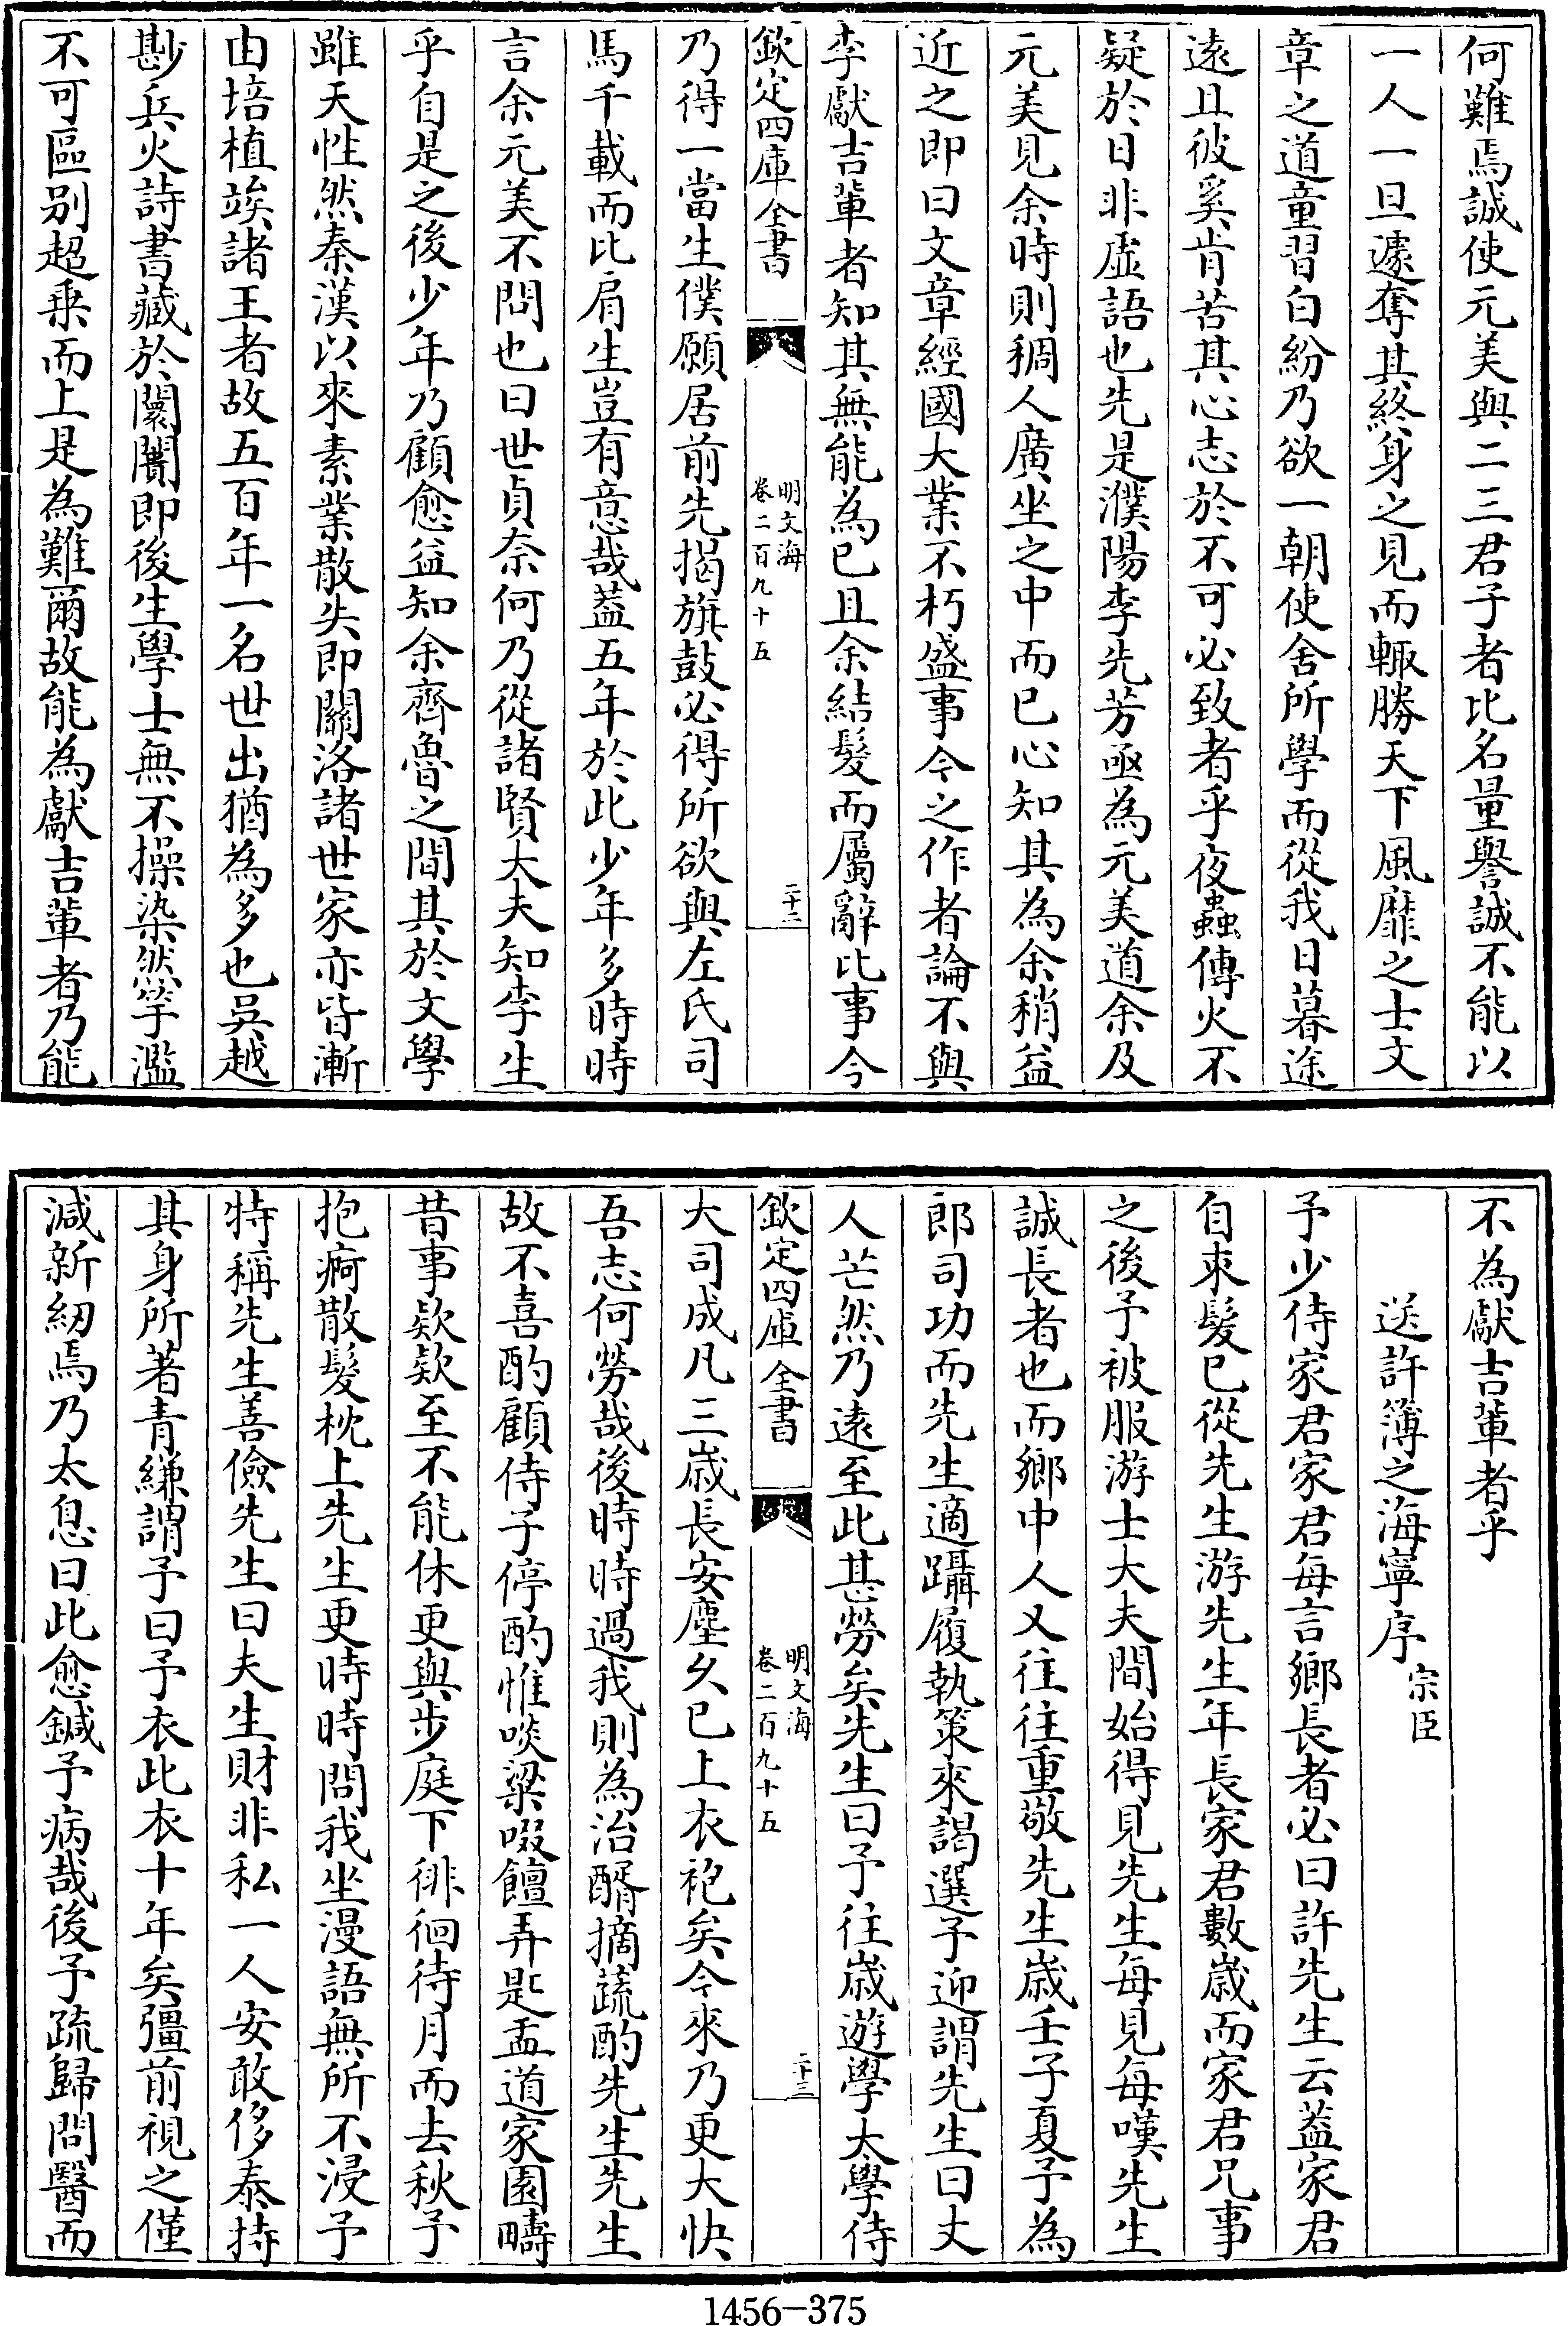 何難焉誠使元美與二三君子者比名量譽誠不能以
一人一旦遽奪其終身之見而輙勝天下風靡之士文
章之道童習白紛乃欲一朝使舍所學而從我日暮途
遠且彼奚肯苦其心志於不可必致者乎夜蟲傳火不
疑於日非虛語也先是濮陽李先芳亟為元美道余及
元美見余時則稠人廣坐之中而已心知其為余稍益
近之即曰文章經國大業不朽盛事今之作者論不與
李獻吉輩者知其無能為已且余結髮而屬辭比事今
欽定四庫全書
明文海
卷二百九十五
二十二
乃得一當生僕願居前先揭旗鼓必得所欲與左氏司
馬千載而比肩生豈有意哉蓋五年於此少年多時時
言余元美不問也曰世貞奈何乃從諸賢大夫知李生
乎自是之後少年乃顧愈益知余齊魯之間其於文學
雖天性然秦漢以來素業散失即關洛諸世家亦皆漸
由培植竢諸王者故五百年一名世出猶為多也吳越
尠兵火詩書藏於闤闠即後生學士無不操染然竽濫
不可區别超乗而上是為難爾故能為獻吉輩者乃能
不為獻吉輩者乎
送許簿之海寧序
宗臣
予少侍家君家君每言鄉長者必曰許先生云蓋家君
自束髮已從先生游先生年長家君數嵗而家君兄事
之後予被服游士大夫間始得見先生每見每嘆先生
誠長者也而鄉中人又往往重敬先生嵗壬子夏予為
郎司功而先生適躡履執策來謁選予迎謂先生曰丈
人芒然乃遠至此甚勞矣先生曰予往嵗遊學太學侍
欽定四庫全書
明文海
卷二百九十五
二十三
大司成凡三嵗長安塵久已上衣袍矣今來乃更大快
吾志何勞哉後時時過我則為治醑摘蔬酌先生先生
故不喜酌顧侍子停酌惟啖粱啜饘弄匙盂道家園疇
昔事欵欵至不能休更與步庭下徘徊待月而去秋予
抱痾散髮枕上先生更時時問我坐漫語無所不浸予
特稱先生善儉先生曰夫生財非私一人安敢侈泰持
其身所著青縑謂予曰予衣此衣十年矣彊前視之僅
減新紉焉乃太息曰此愈鍼予病哉後予疏歸問醫而
1456-375